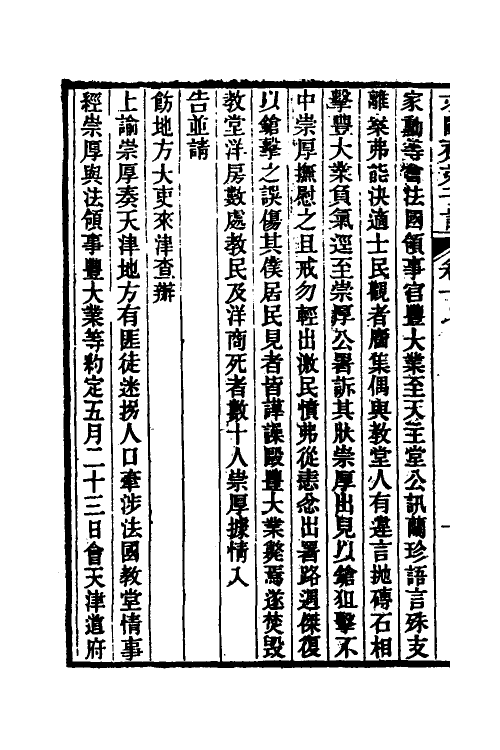 家勳等會法國領事官豐大業至天主堂公訊蘭珍語言殊支
離案弗能決適士民觀者麕集偶與教堂人有違言拋磚石相
擊豐大業負氣逕至崇厚公署訴其狀崇厚出見以鎗狙擊不
中崇厚撫慰之且戒勿輕出激民憤弗從恚忿出署路遇傑復
以鎗擊之誤傷其僕居民見者皆譁譟毆豐大業斃焉遂焚毀
教堂洋房數處教民及洋商死者數十人崇厚據情入
告並請
飭地方大吏來津查辦
上諭崇厚奏天津地方有匪徒迷拐人口牽涉法國教堂情事
經崇厚與法領事豐大業等約定五月二十三日會天津道府